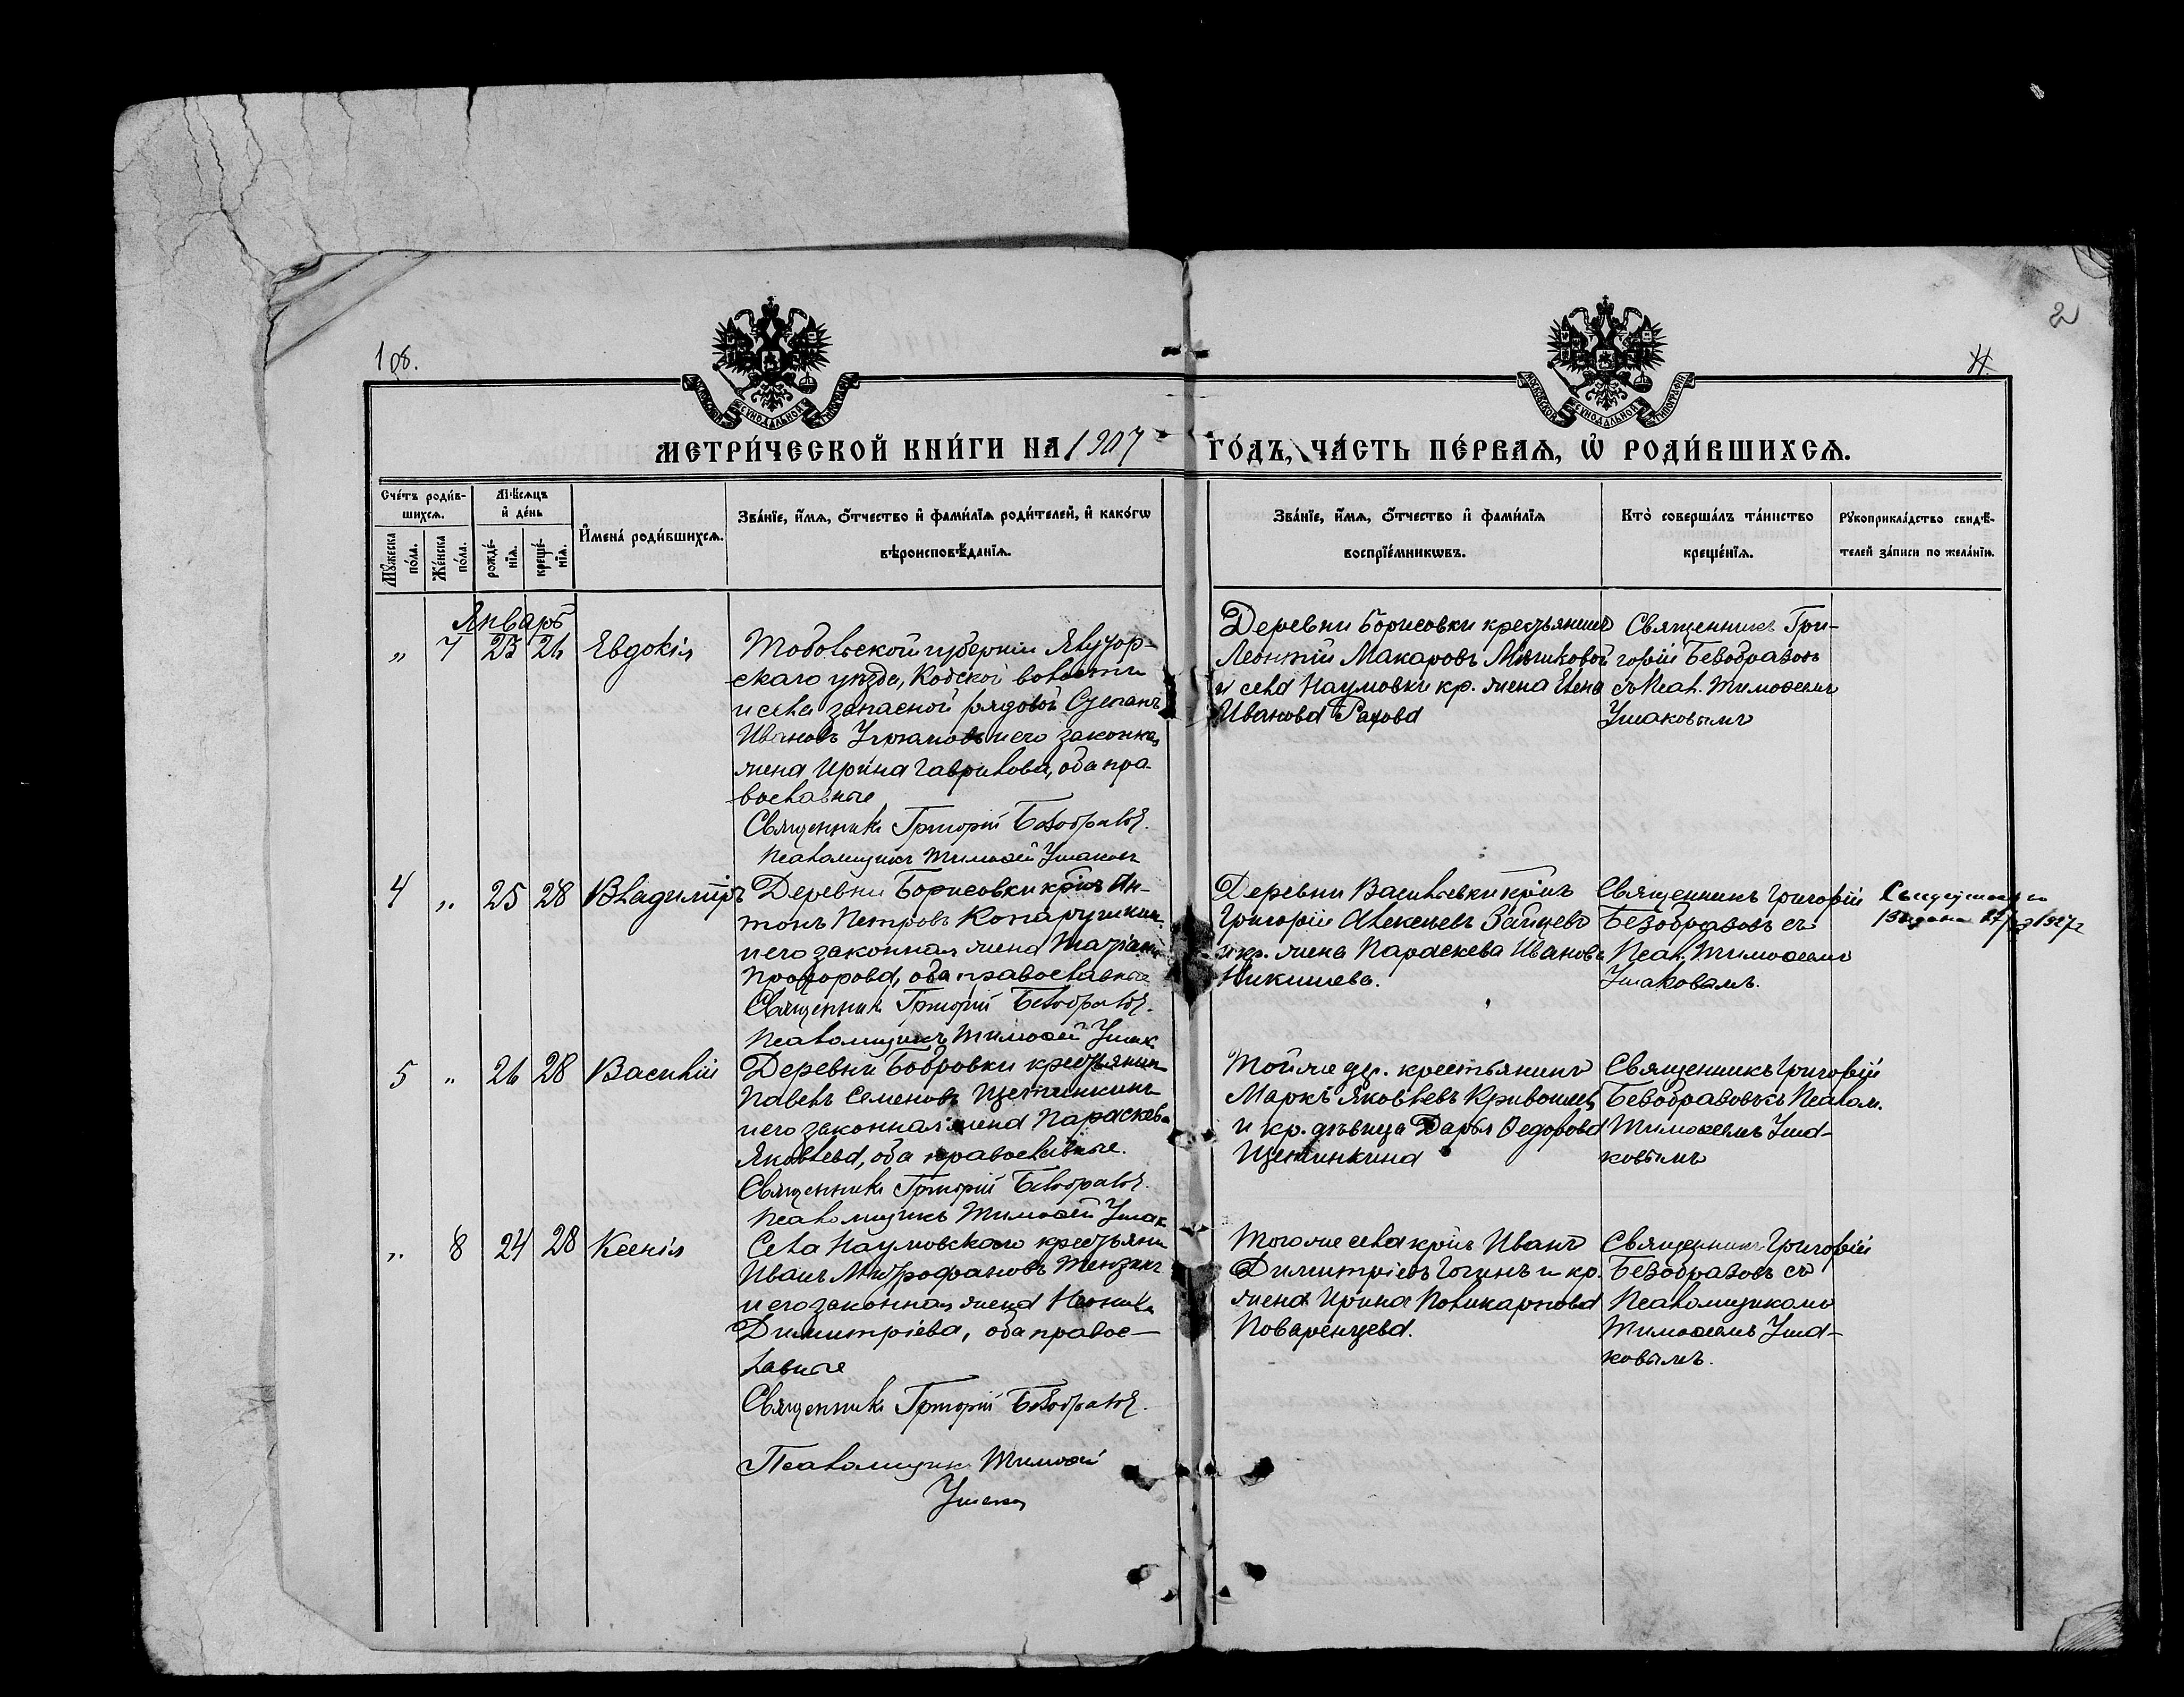 108.
2
МОСКОВСКОЙ СѴНОДАЛЬНОЙ ТИПОГРАФІИ
МОСКОВСКОЙ СѴНОДАЛЬНОЙ ТИПОГРАФІИ
МЕТРИ́ЧЕСКОЙ КНИ́ГИ НА 1907 ГО́ДЪ, ЧА́СТЬ ПЕ́РВАѦ, Ѽ РОДИ́ВШИХСѦ.
Сче́тъ роди́в-
шихсѧ.
Мꙋ́жеска по́ла.
Же́нска по́ла.
Мѣ́сѧцъ
и҆ де́нь
рожде́-
нїѧ.
креще́-
нїѧ.
И҆мена̀ роди́вшихсѧ.
Зва́нїе, и҆́мѧ, ѻ҆́тчество и҆ фами́лїѧ роди́телей, и҆ како́гѡ
вѣроисповѣ́данїѧ.
Зва́нїе, и҆́мѧ, ѻ҆́тчество и҆ фами́лїѧ
воспрїе́мникѡвъ.
Кто̀ соверша́лъ та́инство
креще́нїѧ.
Рꙋкоприкла́дство свидѣ́-
телей за́писи по жела́нїю.
Январь
„ 7 25 26 Евдокія
Тобольской губерніи Ялутор-
скаго уѣзда, Кодской волости
и села запасной рядовой Степанъ
Ивановъ и его законная
жена Ирина Гаврилова, оба пра-
вославные
Священникъ Григорій Безобразовъ.
Псаломщикъ Тимоѳей Ушаковъ
Деревни Борисовки крестьянинъ
Леонтій Макаровъ
и села Наумовки кр. жена Елена
Иванова
Священникъ Гри-
горій Безобразовъ
съ Псал. Тимоѳеемъ
Ушаковымъ
4 „ 25 28 Владиміръ
Деревни Борисовки кр̃нъ Ан-
тонъ Петровъ
и его законная жена
оба православные
Священникъ Григорій Безобразовъ.
Псаломщикъ Тимоѳей Ушак
Деревни Васильевки кр̃нъ
Григорій Алексеевъ Зайцевъ
и кр. жена Параскева Иванова
Никишева.
Священникъ Григорій
Безобразовъ съ
Псал. Тимоѳеемъ
Ушаковымъ.
5 „ 26 28 Василій
Деревни Бобровки крестьянинъ
Павелъ Семеновъ Щетинкинъ
и его законная жена Параскева
Яковлева, оба православные.
Священникъ Григорій Безобразовъ.
Псаломщикъ Тимоѳей Ушак
Той же дер. крестьянинъ
Маркъ Яковлевъ
и кр. дѣвица Дарья Ѳедорова
Щетинкина
Священникъ Григорій
Безобразовъ съ Псалом.
Тимоѳеемъ Уша-
ковымъ
„ 8 24 28 Ксенія
Села Наумовскаго крестьянинъ
Иванъ Митрофановъ
и его законная жена
Димитріева, оба правос-
лавные
Священникъ Григорій Безобразовъ.
Псаломщикъ Тимоѳей
Ушаков
Того же села кр̃нъ Иванъ
Димитріевъ и кр.
жена Ирина Поликарпова
Поваренцева.
Священникъ Григорій
Безобразовъ съ
Псаломщикомъ
Тимоѳеемъ Уша-
ковымъ.